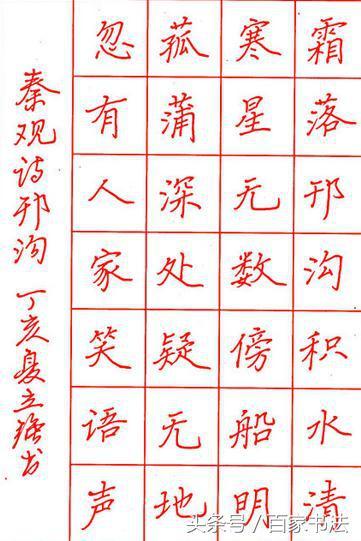 霜落邗沟积水清
寒星无数傍船明
菰蒲深处疑无地
忽有人家笑语声
秦观诗邗沟 丁亥夏立书
头条号/百家书法